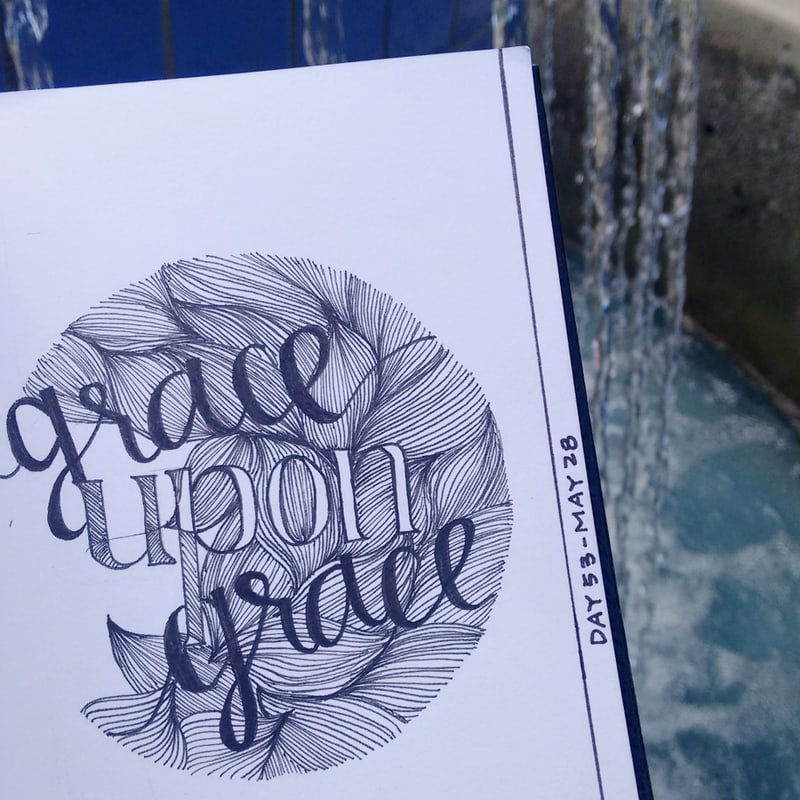 grace
upon
grace
DAY 53 - MAY 28